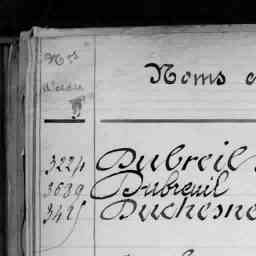 Nos
d'ordre
Noms e
3224 Dubreil
3689 Dubreuil
3425 Duchesne